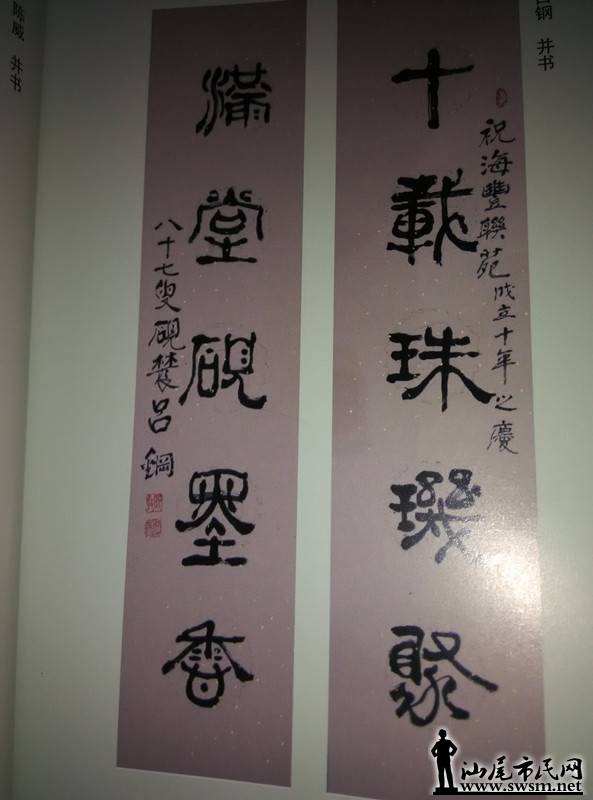 吕钢 并书
祝海豐聯苑成立十年之慶
十載珠璣聚
滿堂硯墨香
八十七叟硯農呂鋼
陈威 并书
汕尾市民网
www.swsm.net